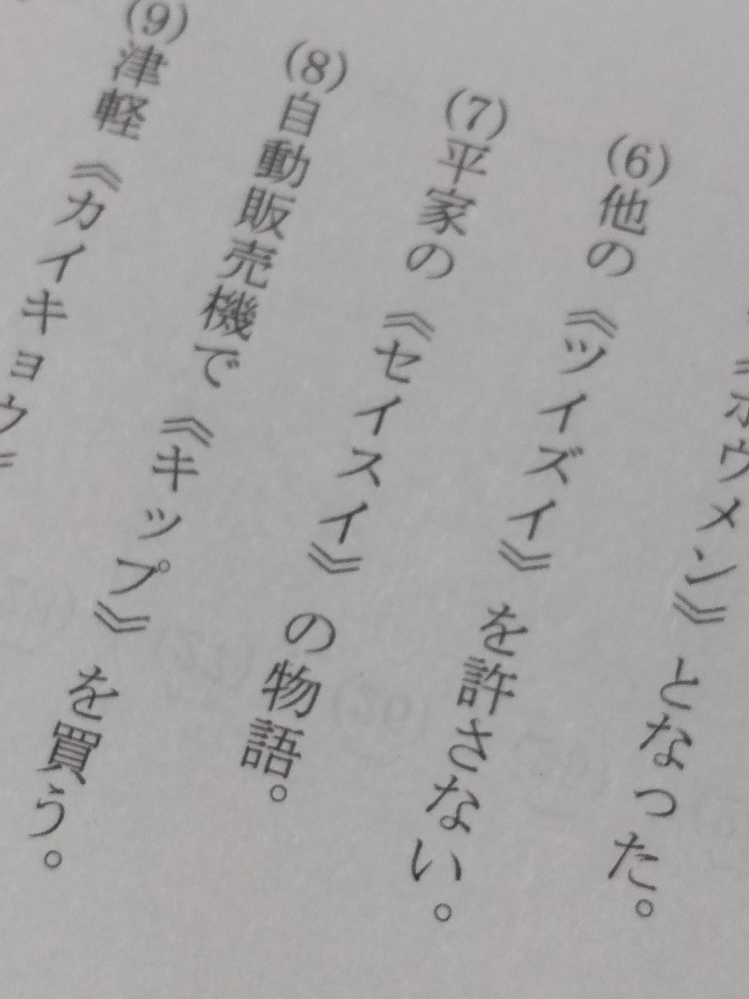 《ホウメン》となった。
(6)他の《ツイズイ》を許さない。
(7)平家の《セイスイ》の物語。
(8)自動販売機で《キップ》を買う。
(9)津軽《カイキョウ